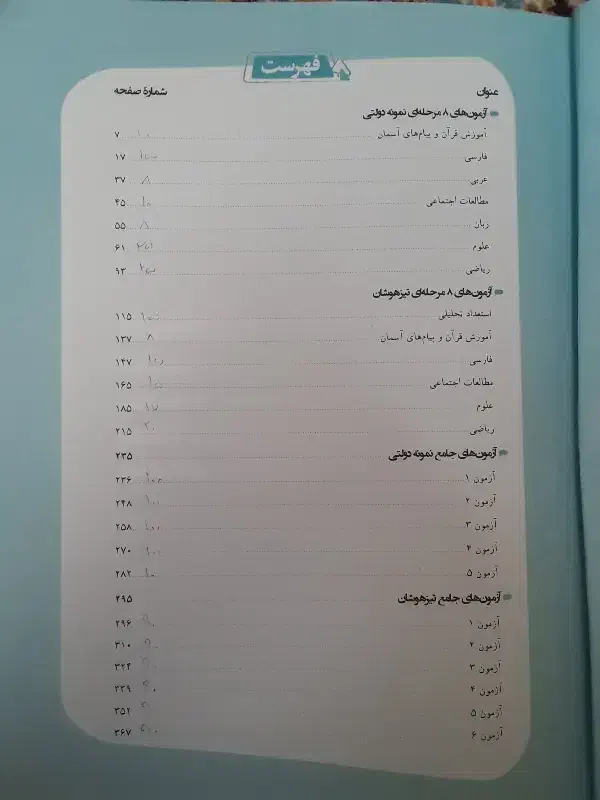 فهرست
عنوان شمارهٔ صفحه
آزمون‌های ۸ مرحله‌ای نمونه دولتی
آموزش قرآن و پیام‌های آسمان ۷
فارسی ۱۷
عربی ۸ ۳۷
مطالعات اجتماعی ۱۰ ۴۵
زبان ۸ ۵۵
علوم ۶۱
ریاضی ۹۳
آزمون‌های ۸ مرحله‌ای تیزهوشان
استعداد تحلیلی ۱۱۵
آموزش قرآن و پیام‌های آسمان ۸ ۱۳۷
فارسی ۱۴۷
مطالعات اجتماعی ۱۶۵
علوم ۱۸۵
ریاضی ۲۰ ۲۱۵
آزمون‌های جامع نمونه دولتی ۲۳۵
آزمون ۱ ۲۳۶
آزمون ۲ ۱۰۰ ۲۴۸
آزمون ۳ ۱۰۰ ۲۵۸
آزمون ۴ ۱۰۰ ۲۷۰
آزمون ۵ ۲۸۲
آزمون‌های جامع تیزهوشان ۲۹۵
آزمون ۱ ۲۹۶
آزمون ۲ ۳۱۰
آزمون ۳ ۳۲۴
آزمون ۴ ۳۳۹
آزمون ۵ ۳۵۲
آزمون ۶ ۳۶۷